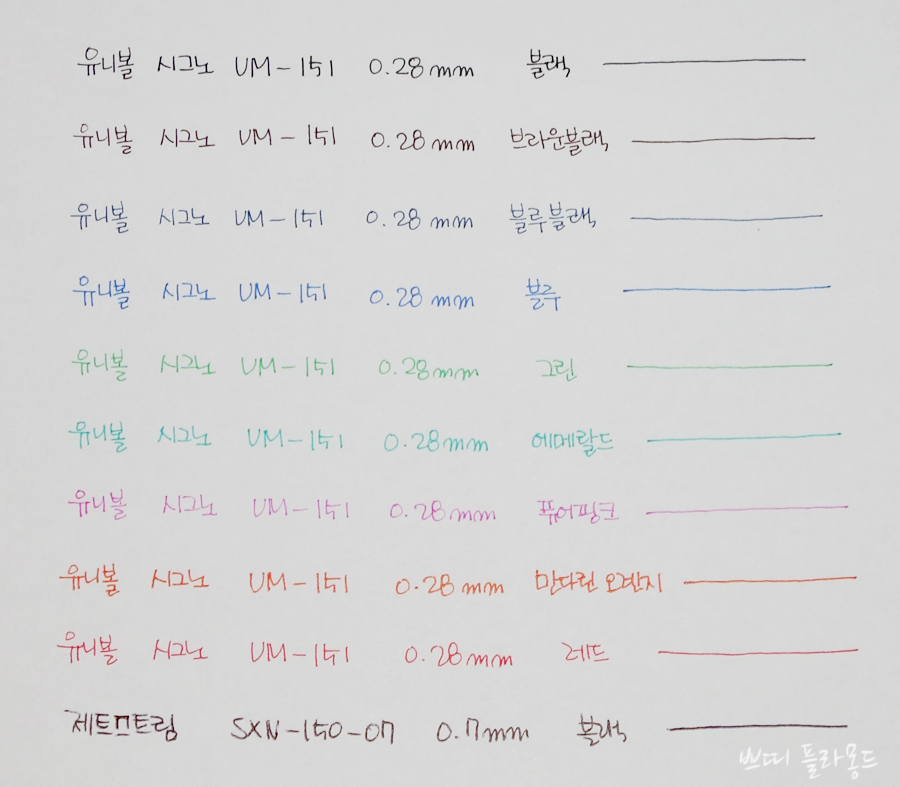 유니볼 시그노 UM-151 0.28mm 블랙
유니볼 시그노 UM-151 0.28mm 브라운블랙
유니볼 시그노 UM-151 0.28mm 블루블랙
유니볼 시그노 UM-151 0.28mm 블루
유니볼 시그노 UM-151 0.28mm 그린
유니볼 시그노 UM-151 0.28mm 에메랄드
유니볼 시그노 UM-151 0.28mm 퓨어핑크
유니볼 시그노 UM-151 0.28mm 만다린 오렌지
유니볼 시그노 UM-151 0.28mm 레드
제트스트림 SXN-150-07 0.7mm 블랙
쁘띠 플라몽드